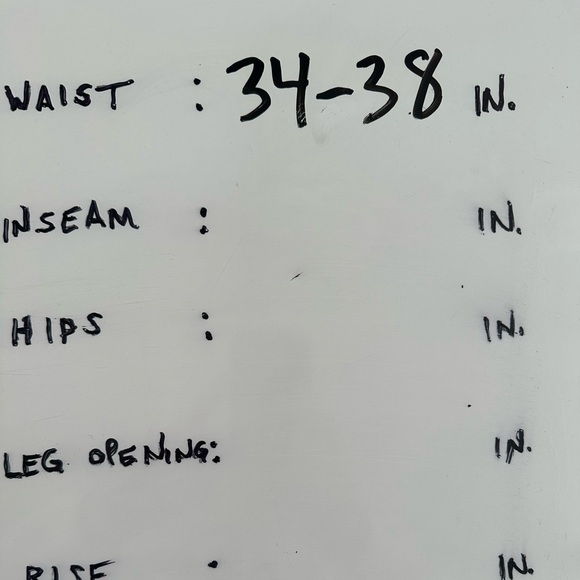 WAIST : 34-38 IN.
INSEAM : IN.
HIPS : IN.
LEG OPENING: IN.
RISE : IN.